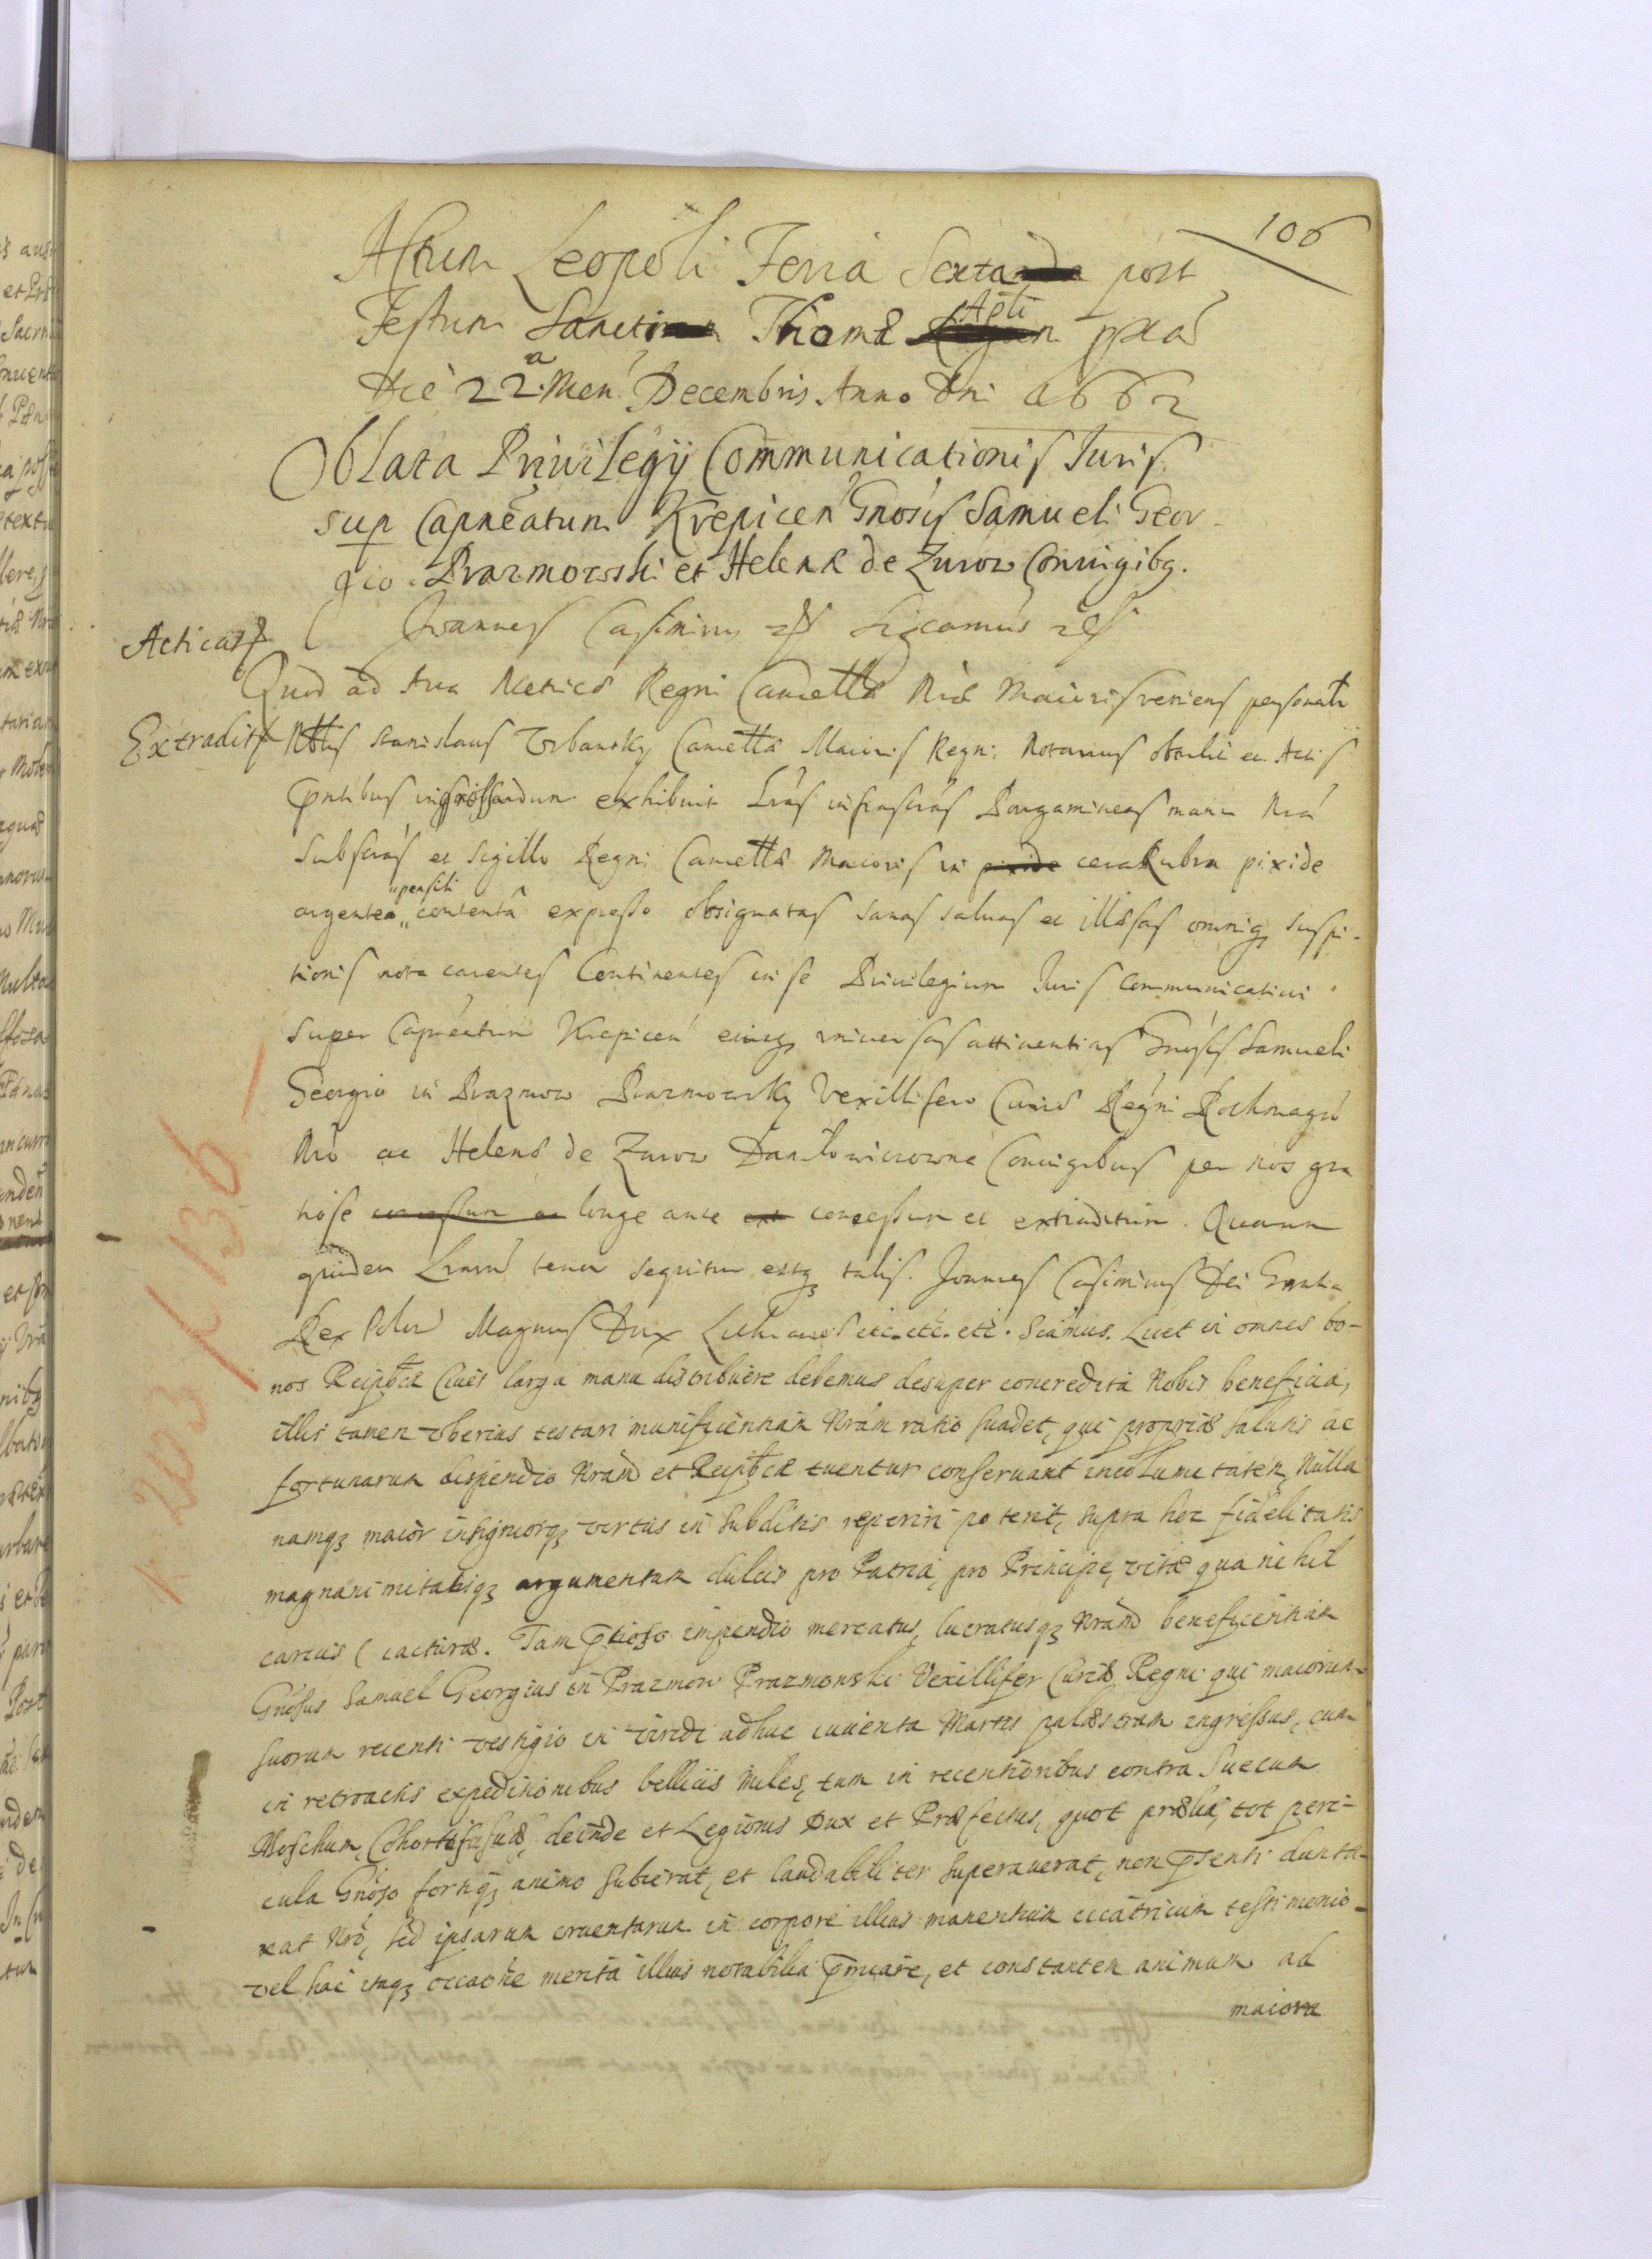 106
Actum Leopoli Feria Sexta post
Festum Sancti Thomæ Apłi
die 22.a Men Decembris Anno Dni 1662
Oblata Priuilegÿ Communicationis Iuris
sup Capneatum Krepicen Gnosis Samueli Geor
gio Prazmowski et Helenæ de Zurow Coniugibq.
Acticat
Joannes Casimirus Sigcamus
Quod ad Acta Metricæ Regni Cancellæ Nræ Maioris veniens personalr
Extradit
Nblis Stanislaus Vrbansky Cancellæ Maioris Regni Notarius obtulit et Actis
pntibus ingrossandum exhibuit Lras infrascras Pargamineas manu Nra
Subscras et Sigillo Regni Cancellæ Maioris in pixide cera Rubra pixide
pensili
argentea contenta expresso obsignatas sanas saluas et illæsas omniq suspi-
tionis nota carentes Continentes in se Priuilegium Iuris communicatiui
super Capneatum Krepicen eiusq vniuersas attinentias Gnosis Samueli
Georgio in Prazmow Prazmowsky Vexillifero Curiæ Regni Rothmagro
Nro ac Helenæ de Zurow Daniłowiczowna Coniugibus per nos gra
tiose longe ante concessum et extraditum. Quarum
quidem Lrarum tenor sequitur estq talis. Joannes Casimirus Dei Gratia
Rex Polon Magnus Dux Lithuaniæ etc. etc. etc. Sigcamus. Licet in omnes bo-
nos Reipblcæ Ciues larga manu distribuere debemus desuper concredita Nobis beneficia,
illis tamen vberius testari munificentiam Nram ratio suadet, qui propriæ salutis ac
fortunarum dispendio Nram et Reipblcæ tuentur conseruant incolumitatem, Nulla
namq maior insigniorq virtus in subditis reperiri poterit, supra hoc fidelitatis
magnanimitatisq argumentum dulcis pro Patria, pro Principe, vitæ qua nihil
carius iacturæ. Tam ptioso impendio mercatus, lucratusq Nram beneficentiam
Gnosus Samuel Georgius in Prazmow Prazmowski Vexillifer Curiæ Regni qui maiorum
suorum recenti vestigio in viridi adhuc iuuenta Martis palæstram ingressus, cum
in retroactis expeditionibus bellicis Miles, tum in recentioribus contra Suecum
Moschum, Cohortis suæ, deinde et Legionis Dux et Præfectus, quot prælia, tot peri-
cula Gnoso fortiq animo subierat, et laudabiliter superauerat, non psenti dunta-
xat Nro, sed ipsarum cruentarum in corpore illius manentium cicatricum testimonio
vel hac itaq occaone merita illius notabilia pmiare, et constantem animum ad
maiora